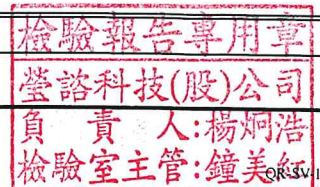 檢驗報告專用章
瑩諮科技(股)公司
負責人:楊炯浩
檢驗室主管:鐘美紅
QR-SV-1